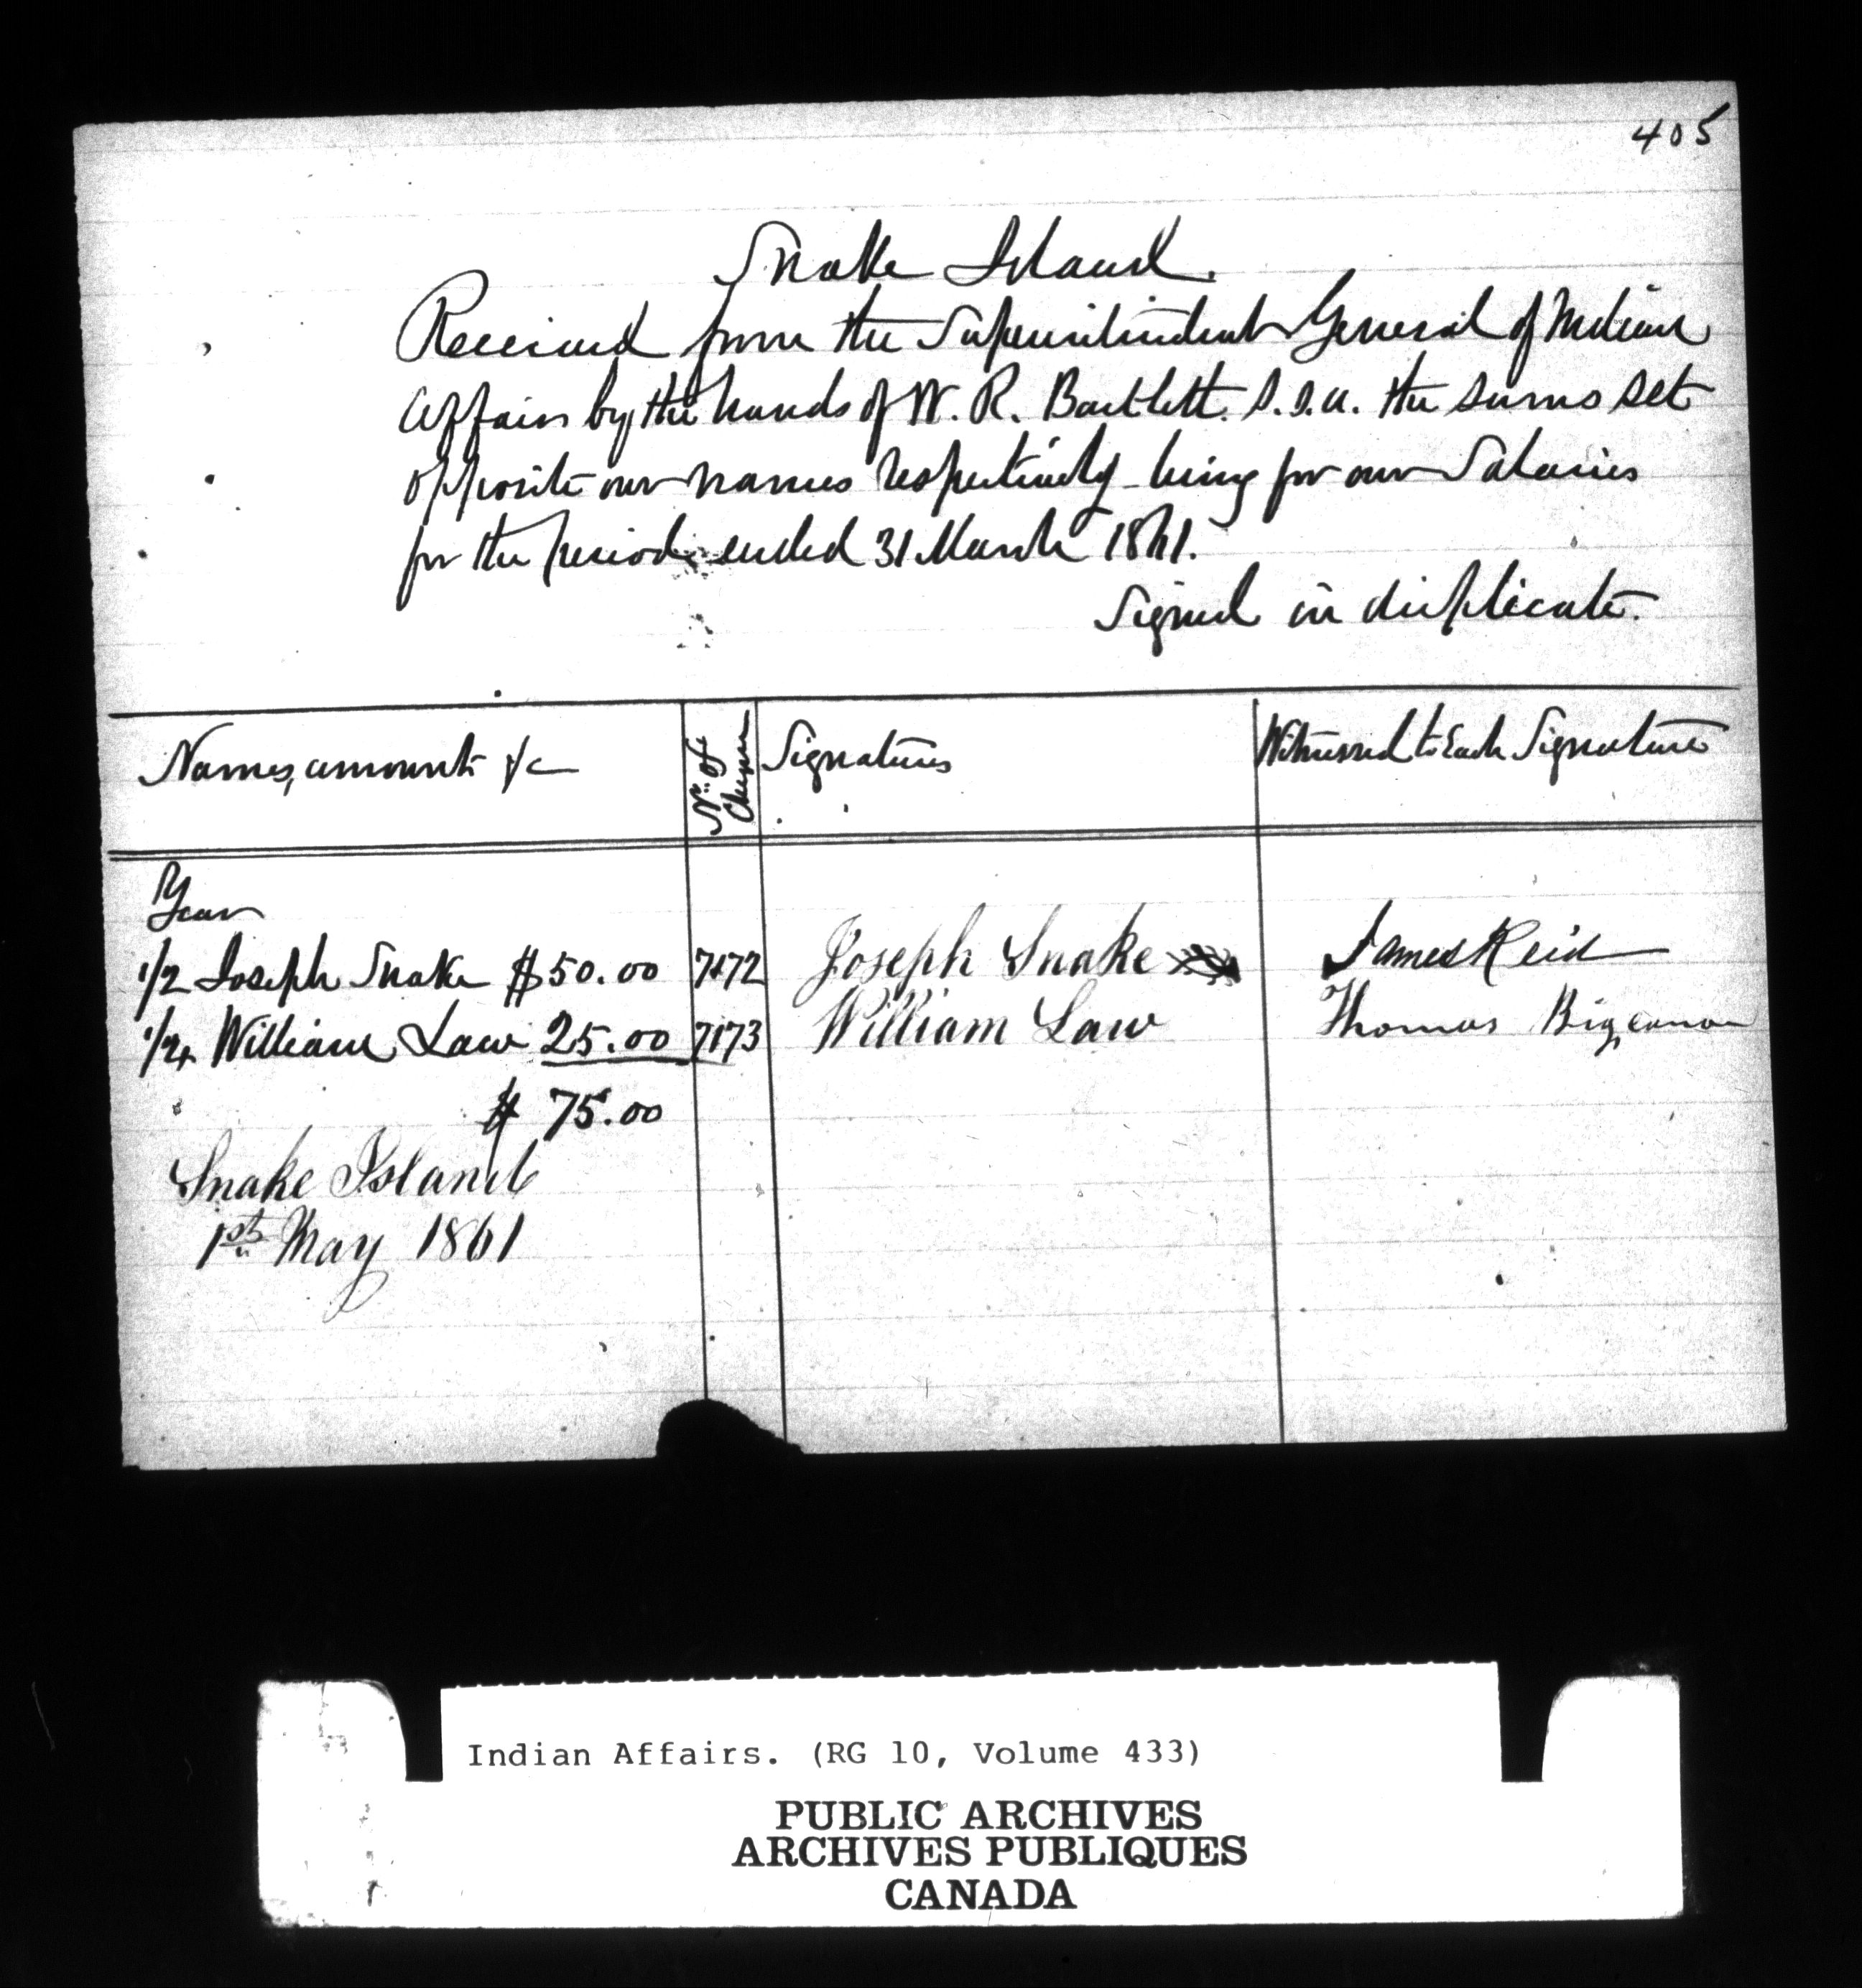 405
Snake Island.
Received from the Superintendent General of Indian
Affairs by the hands of W. R. Bartlett. S.I.A. the sums set
opposite our names respectively being for our Salaries
for the period ended 31 March 1861.
Signed in duplicate.
Names, amounts &c No. of Signatures Witnessed to Each Signature
Year
1/2 Joseph Snake $50.00 7172 Joseph Snake James Reid
1/4 William Law 25.00 7173 William Law Thomas Bigcanoe
$ 75.00
Snake Island
1st May 1861
Indian Affairs. (RG 10, Volume 433)
PUBLIC ARCHIVES
ARCHIVES PUBLIQUES
CANADA